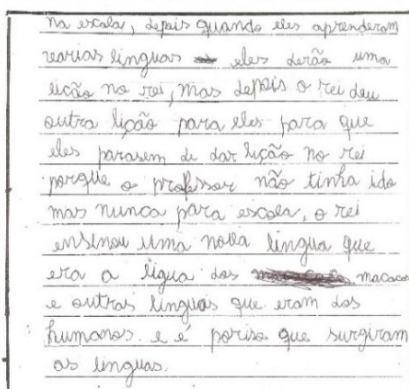 na escola, depois quando eles aprenderam
varias linguas eles derão uma
lição no rei, mas depois o rei deu
outra lição para eles para que
eles parasem de dar lição no rei
porque o professor não tinha ido
mas nunca para escola, o rei
ensinou uma nova lingua que
era a ligua dos macacos
e outras linguas que eram dos
humanos. e é poriso que surgiram
as linguas.